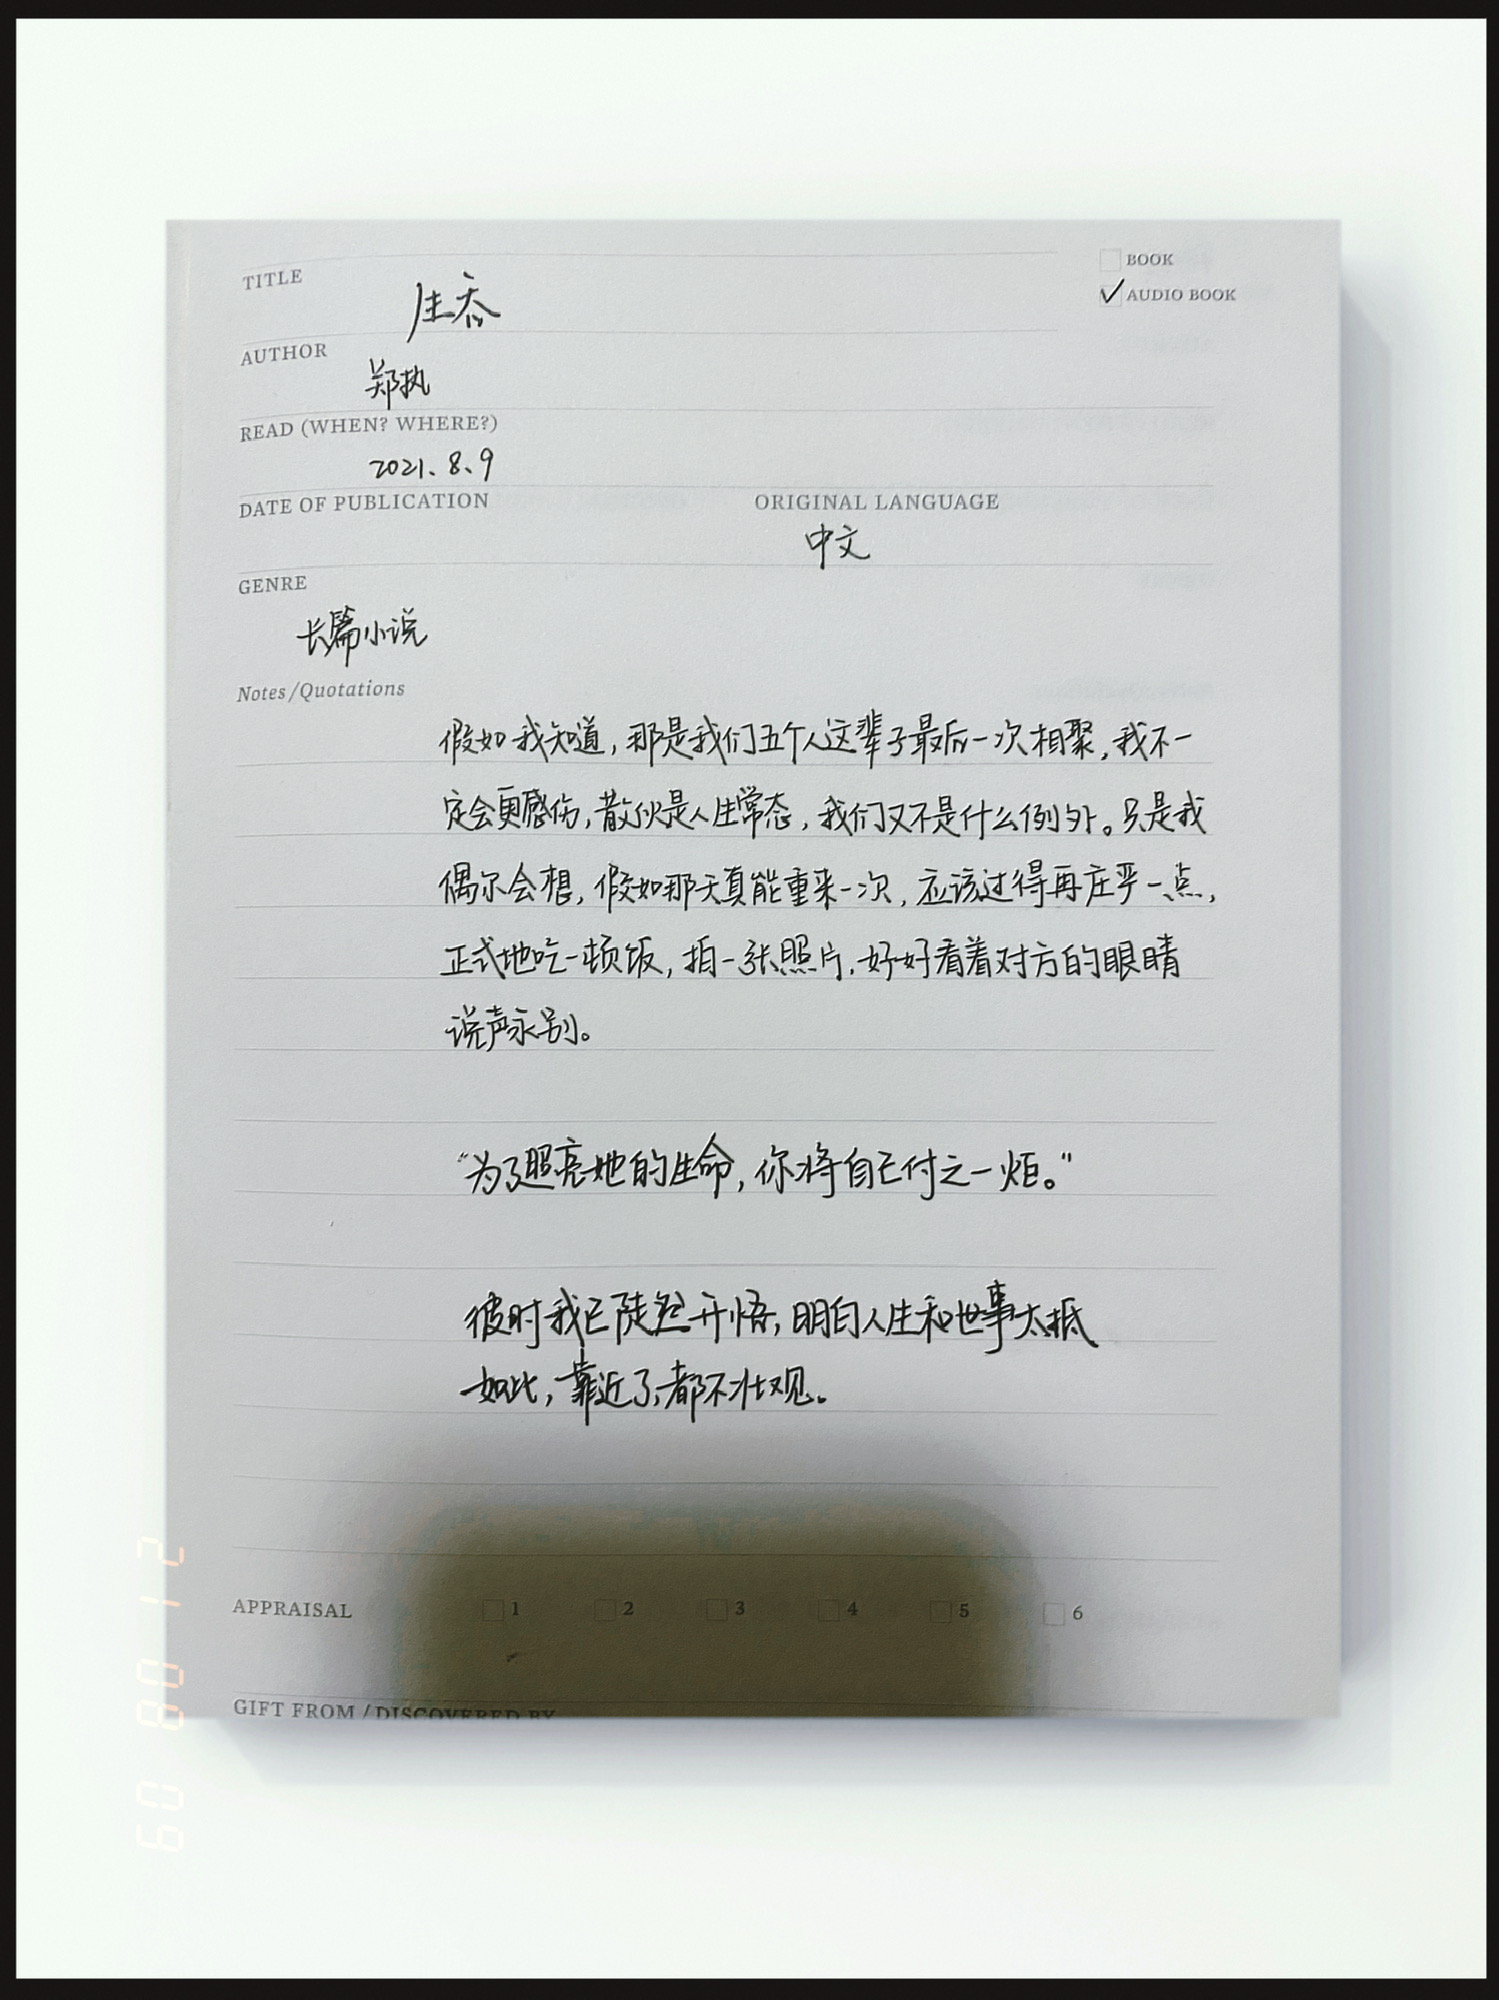 TITLE
生吞
BOOK
AUDIO BOOK
AUTHOR
郑执
READ (WHEN? WHERE?)
2021、8、9
DATE OF PUBLICATION
ORIGINAL LANGUAGE
中文
GENRE
长篇小说
Notes/Quotations
假如我知道，那是我们五个人这辈子最后一次相聚，我不一
定会更感伤，散伙是人生常态，我们又不是什么例外。只是我
偶尔会想，假如那天真能重来一次，应该过得再庄严一点，
正式地吃一顿饭，拍一张照片，好好看着对方的眼睛
说声永别。
“为了照亮她的生命，你将自己付之一炬。”
彼时我已陡然开悟，明白人生和世事大抵
如此，靠近了，都不壮观。
APPRAISAL 1 2 3 4 5 6
GIFT FROM / DISCOVERED BY
21 08 09